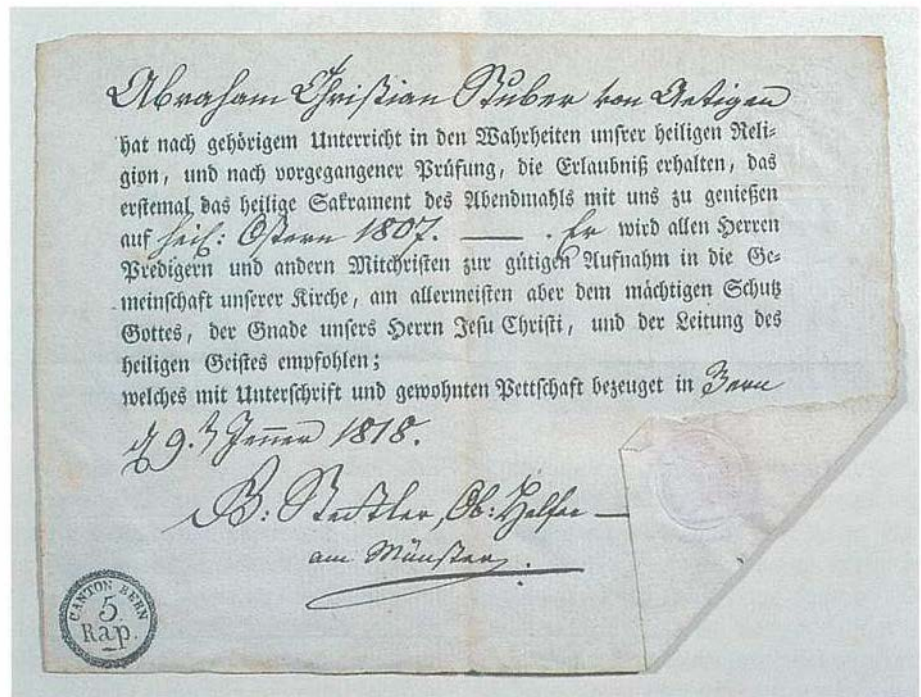 Abraham Christian Stuber von Aetigen
hat nach gehörigem Unterricht in den Wahrheiten unsrer heiligen Reli=
gion, und nach vorgegangener Prüfung, die Erlaubniß erhalten, das
erstemal das heilige Sakrament des Abendmahls mit uns zu genießen
auf heil: Ostern 1807. — . Er wird allen Herren
Predigern und andern Mitchristen zur gütigen Aufnahm in die Ge=
meinschaft unserer Kirche, am allermeisten aber dem mächtigen Schutz
Gottes, der Gnade unsers Herrn Jesu Christi, und der Leitung des
heiligen Geistes empfohlen;
welches mit Unterschrift und gewohnten Pettschaft bezeuget in Bern
9. Jenner 1818.
B: Stettler, Ob: Helfer —
am Münster.
CANTON BERN
5
Rap.